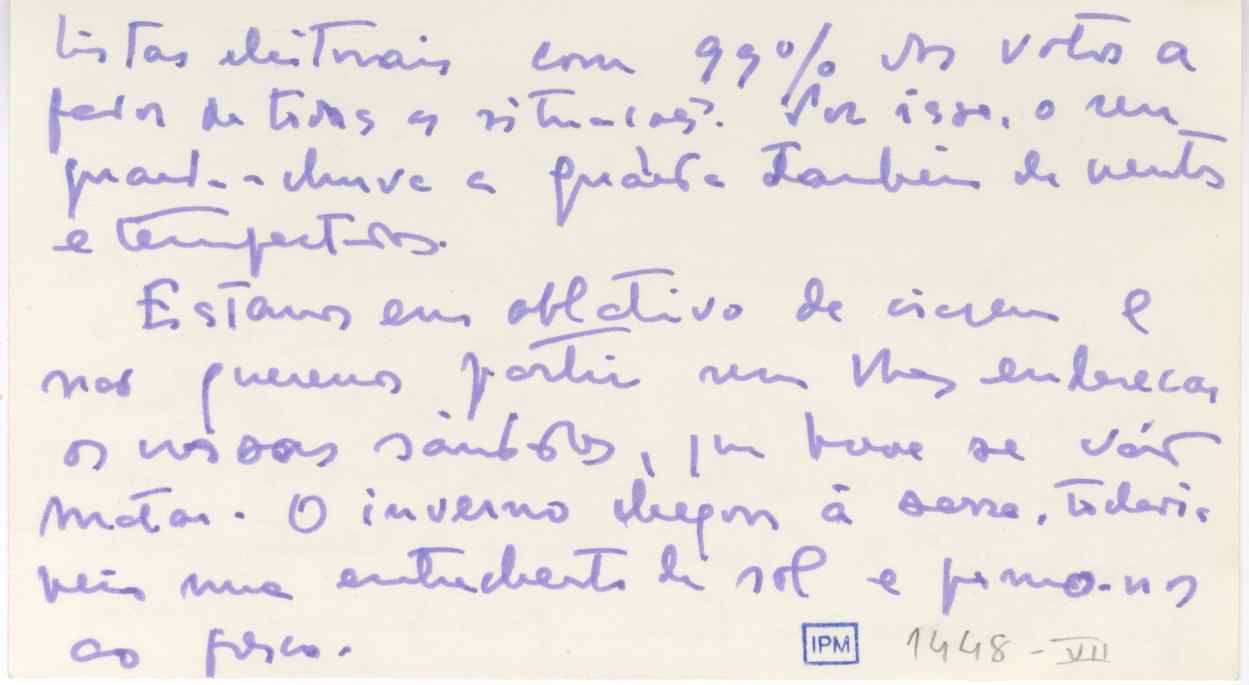 listas eleitorais com 99% dos votos a
favor de todas as situações. Por isso, o seu
guarda-chuva a guarda também de ventos
e tempestades.
Estamos em ablativo de viagem e
não queremos partir sem lhes endereçar
os nossos saudosos, que breve se vão
matar. O inverno chegou à serra, todavia
veio uma entreaberta de sol e pomo-nos
ao fresco.
IPM 1448-VII